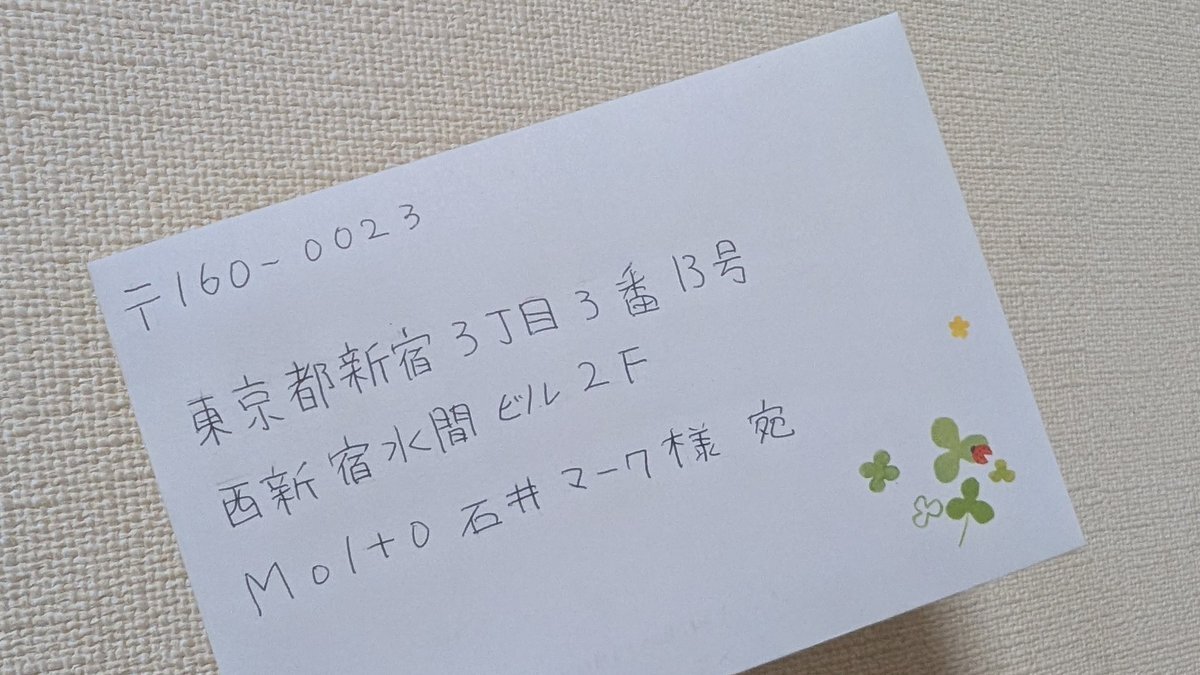 〒160-0023
東京都新宿3丁目3番13号
西新宿水間ビル2F
Molto 石井マーク様 宛